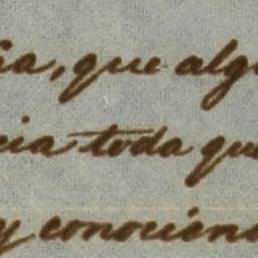 ia, que algu
cia toda que
y conocien